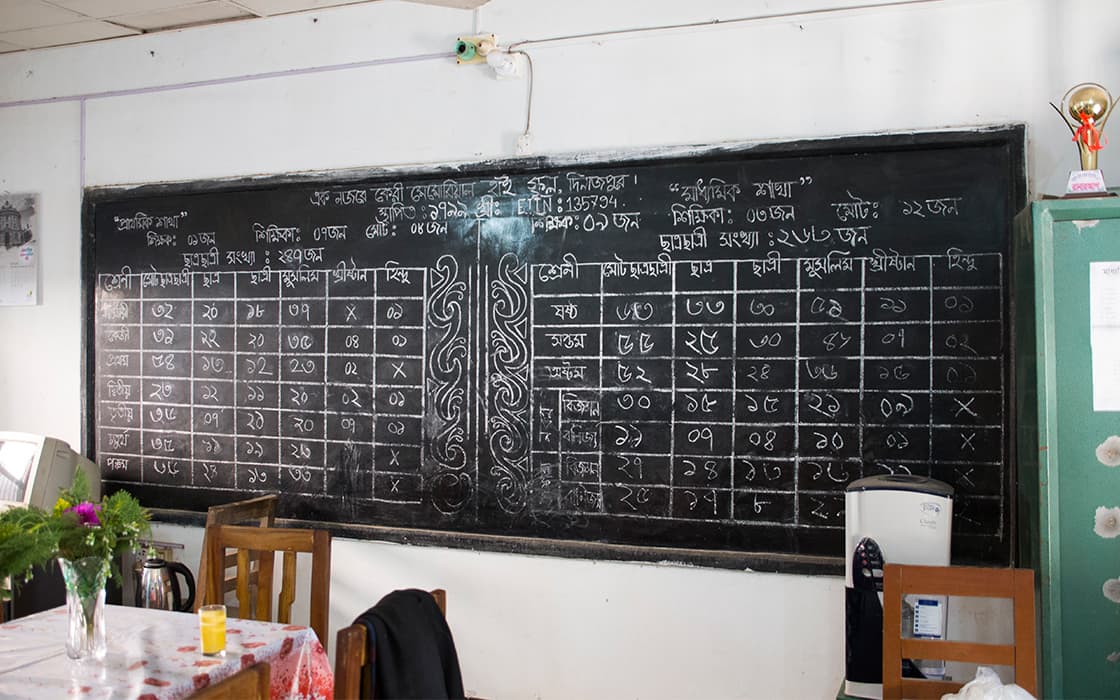 এক নজরে কেরী মেমোরিয়াল হাই স্কুল, দিনাজপুর।
স্থাপিত: ১৭৯৯ খ্রী: EIIN: 135794
"প্রাথমিক শাখা"
শিক্ষক: ০১ জন শিক্ষিকা: ০৭ জন মোট: ০৮ জন
ছাত্রছাত্রী সংখ্যা: ২৪৭ জন
শ্রেণী মোট ছাত্রছাত্রী ছাত্র ছাত্রী মুসলিম খ্রীষ্টান হিন্দু
৩২ ২০ ১৮ ৩৭ X ০১
কেজি ৩৯ ২২ ২০ ৩৫ ০৪ ০১
প্রথম ৫৪ ১৩ ১২ ২৩ ০২ X
দ্বিতীয় ২৩ ১২ ১১ ২০ ০২ ০১
তৃতীয় ৩৫ ০৭ ২০ ০৭ ০১
চতুর্থ ৩৫ ১৯ X
পঞ্চম ১৩ ৩৩ X
"মাধ্যমিক শাখা"
শিক্ষক: ০৯ জন শিক্ষিকা: ০৩ জন মোট: ১২ জন
ছাত্রছাত্রী সংখ্যা: ২৬৩ জন
শ্রেণী মোট ছাত্রছাত্রী ছাত্র ছাত্রী মুসলিম খ্রীষ্টান হিন্দু
ষষ্ঠ ৬৩ ৩৩ ৩০ ৫১ ১১ ০১
সপ্তম ৫৫ ২৫ ৩০ ০৭ ০২
অষ্টম ৫২ ২৮ ২৪ ৩৬ ১৫ ০১
বিজ্ঞান ৩০ ১৫ ১৫ ২১ ০৯ X
বানিজ্য ০৭ ০৪ ১০ ০১ X
বিজ্ঞান ২৭ ১৪ ১৩ ১৬ ১১ X
বানিজ্য ২৫ ১৭ ৮